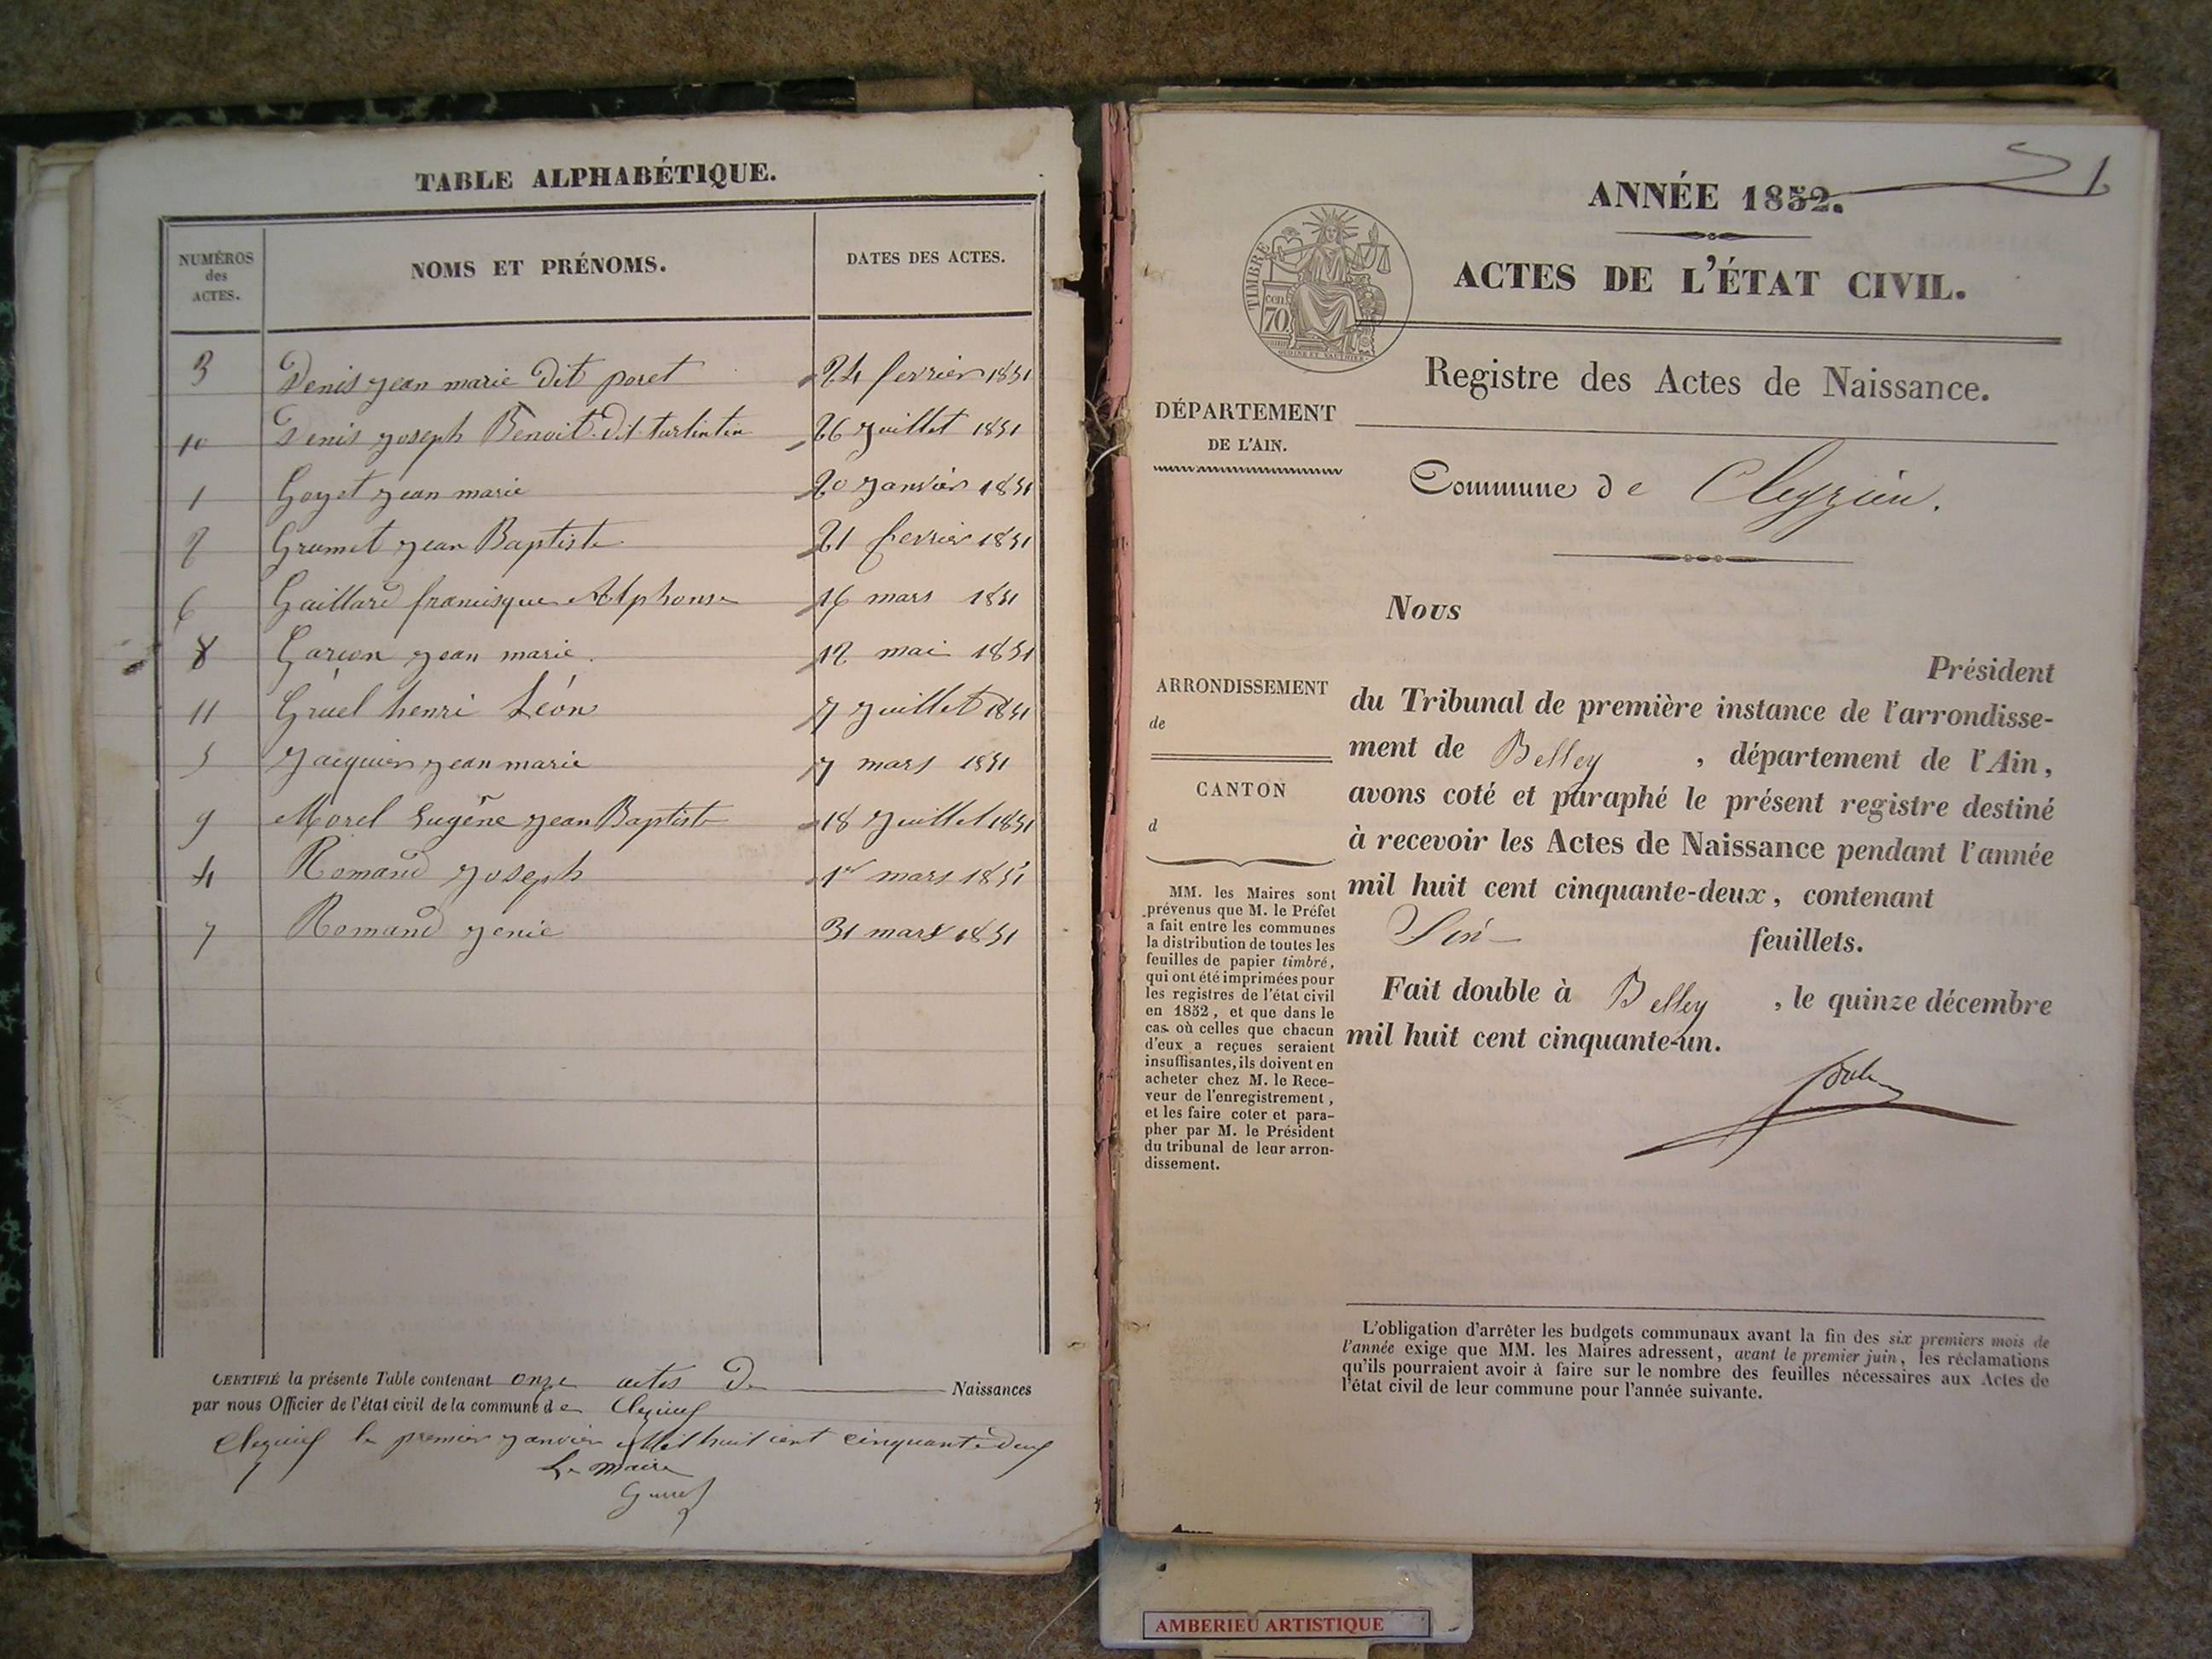 TABLE ALPHABÉTIQUE.
NUMÉROS des ACTES. NOMS ET PRÉNOMS. DATES DES ACTES.
3 Denis jean marie dit poret 24 fevrier 1851
10 Denis joseph Benoit dit turlintin 26 juillet 1851
1 Goyet jean marie 20 janvier 1851
2 Grumet jean Baptiste 21 fevrier 1851
6 Gaillard francisque Alphonse 16 mars 1851
8 Garçon jean marie 12 mai 1851
11 Gruel henri Léon 7 juillet 1851
5 Jacquier jean marie 7 mars 1851
9 Morel Eugêne jean Baptiste 18 juillet 1851
4 Romand joseph 1er mars 1851
7 Romand jenie 31 mars 1851
CERTIFIÉ la présente Table contenant onze actes de Naissances
par nous Officier de l'état civil de la commune de Cleyzieu
Cleyzieu le premier janvier Mil huit cent cinquante deux
Le maire
1
ANNÉE 1852.
ACTES DE L'ÉTAT CIVIL.
TIMBRE
cen.
70
OUDINE ET VAUTHIER
Registre des Actes de Naissance.
DÉPARTEMENT
DE L'AIN.
Commune de Cleyzieu.
Nous
Président
du Tribunal de première instance de l'arrondisse-
ment de Belley , département de l'Ain,
avons coté et paraphé le présent registre destiné
à recevoir les Actes de Naissance pendant l'année
mil huit cent cinquante-deux, contenant
feuillets.
Fait double à Belley , le quinze décembre
mil huit cent cinquante-un.
ARRONDISSEMENT
de
CANTON
d
MM. les Maires sont
prévenus que M. le Préfet
a fait entre les communes
la distribution de toutes les
feuilles de papier timbré,
qui ont été imprimées pour
les registres de l'état civil
en 1852, et que dans le
cas où celles que chacun
d'eux a reçues seraient
insuffisantes, ils doivent en
acheter chez M. le Rece-
veur de l'enregistrement,
et les faire coter et para-
pher par M. le Président
du tribunal de leur arron-
dissement.
L'obligation d'arrêter les budgets communaux avant la fin des six premiers mois de
l'année exige que MM. les Maires adressent, avant le premier juin, les réclamations
qu'ils pourraient avoir à faire sur le nombre des feuilles nécessaires aux Actes de
l'état civil de leur commune pour l'année suivante.
AMBERIEU ARTISTIQUE